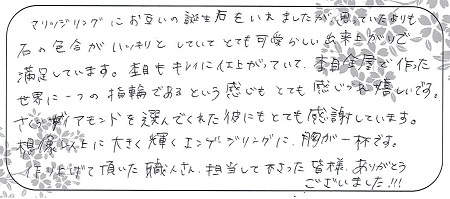 マリッジリングにお互いの誕生石をいれましたが思っていたよりも
石の色合がしっかりとしていてとても可愛らしい出来上がりで
満足しています。杢目もキレイに仕上がっていて、杢目金屋で作った
世界に一つの指輪であるという感じもとても感じられ嬉しいです。
さくらダイアモンドを選んでくれた彼にもとても感謝しています。
想像以上に大きく輝くエンゲージリングに、胸が一杯です。
作り上げて頂いた職人さん、担当して下さった皆様、ありがとう
ございました!!!